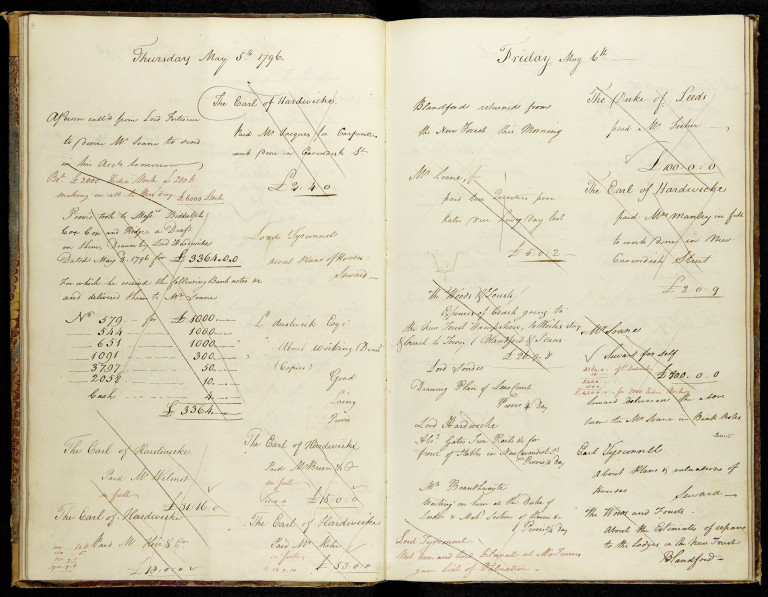 Thursday May 5th 1796.
A Person call'd from Lord Fortescue
to desire Mr Soane to send
in his Acct. tomorrow
Bot. £2000 India Stock
making in all to this day £6000 Stock
Provis took to Messrs Biddulph
Cox Cox and Ridge a Draft
on them, Drawn by Lord Hardwicke
Dated May 4. 1796 for £3364.0.0
For which he received the following Bank notes &c
and delivered them to Mr Soane
No. 579 – for £1000
544 1000
651 1000
1091 300
3797 50
2058 10
Cash 4
£3364
The Earl of Hardwicke
Paid Mr Wilmot
in full
£31.16.0
The Earl of Hardwicke
Paid Mr
£18.0.0
The Earl of Hardwicke
Paid Mr Jacques for Carpenters
work done in Cavendish St
£2.4.0
Lord Tyrconnel
about Plans of Houses
Seward
Esqr
About working Draws
(Copies)
Good
Laing
Provis
The Earl of Hardwicke
Paid
in full
£15.0.0
The Earl of Hardwicke
Paid Mr
in full
£53.0.0
Friday May 6th
Blandford returned from
the New Forest this Morning
Mr Soane,
paid two Quarters poor
Rates due Lady Day last
£5.0.2
The Woods & Forests
Expences of Coach going to
the New Forest Hampshire,
£21.0.8
Lord Sondes
Drawing Plan of Lees Court
Provis ½ Day
Lord Hardwicke
Abt. Gates Iron Rails &c for
front of Stable in New Cavendish St
Provis ½ Day
Mr Braithwayte
Waiting on him at the Duke of
Leeds
Provis ½ Day
Lord Tyrconnel
Met him and
gave List of Valuation
The Duke of Leeds
paid Mr
£100.0.0
The Earl of Hardwicke
paid Mr Manley in full
to work done in New
Cavendish Street
£20.9
Mr Soane
Seward for self
£700.0.0
Seward delivered the above
sum to Mr Soane in Bank Notes
Earl Tyrconnell
About Plans & valuations of
Houses
Seward
The Woods and Forests
About the Estimates of repairs
to the Lodges in the New Forest
Blandford